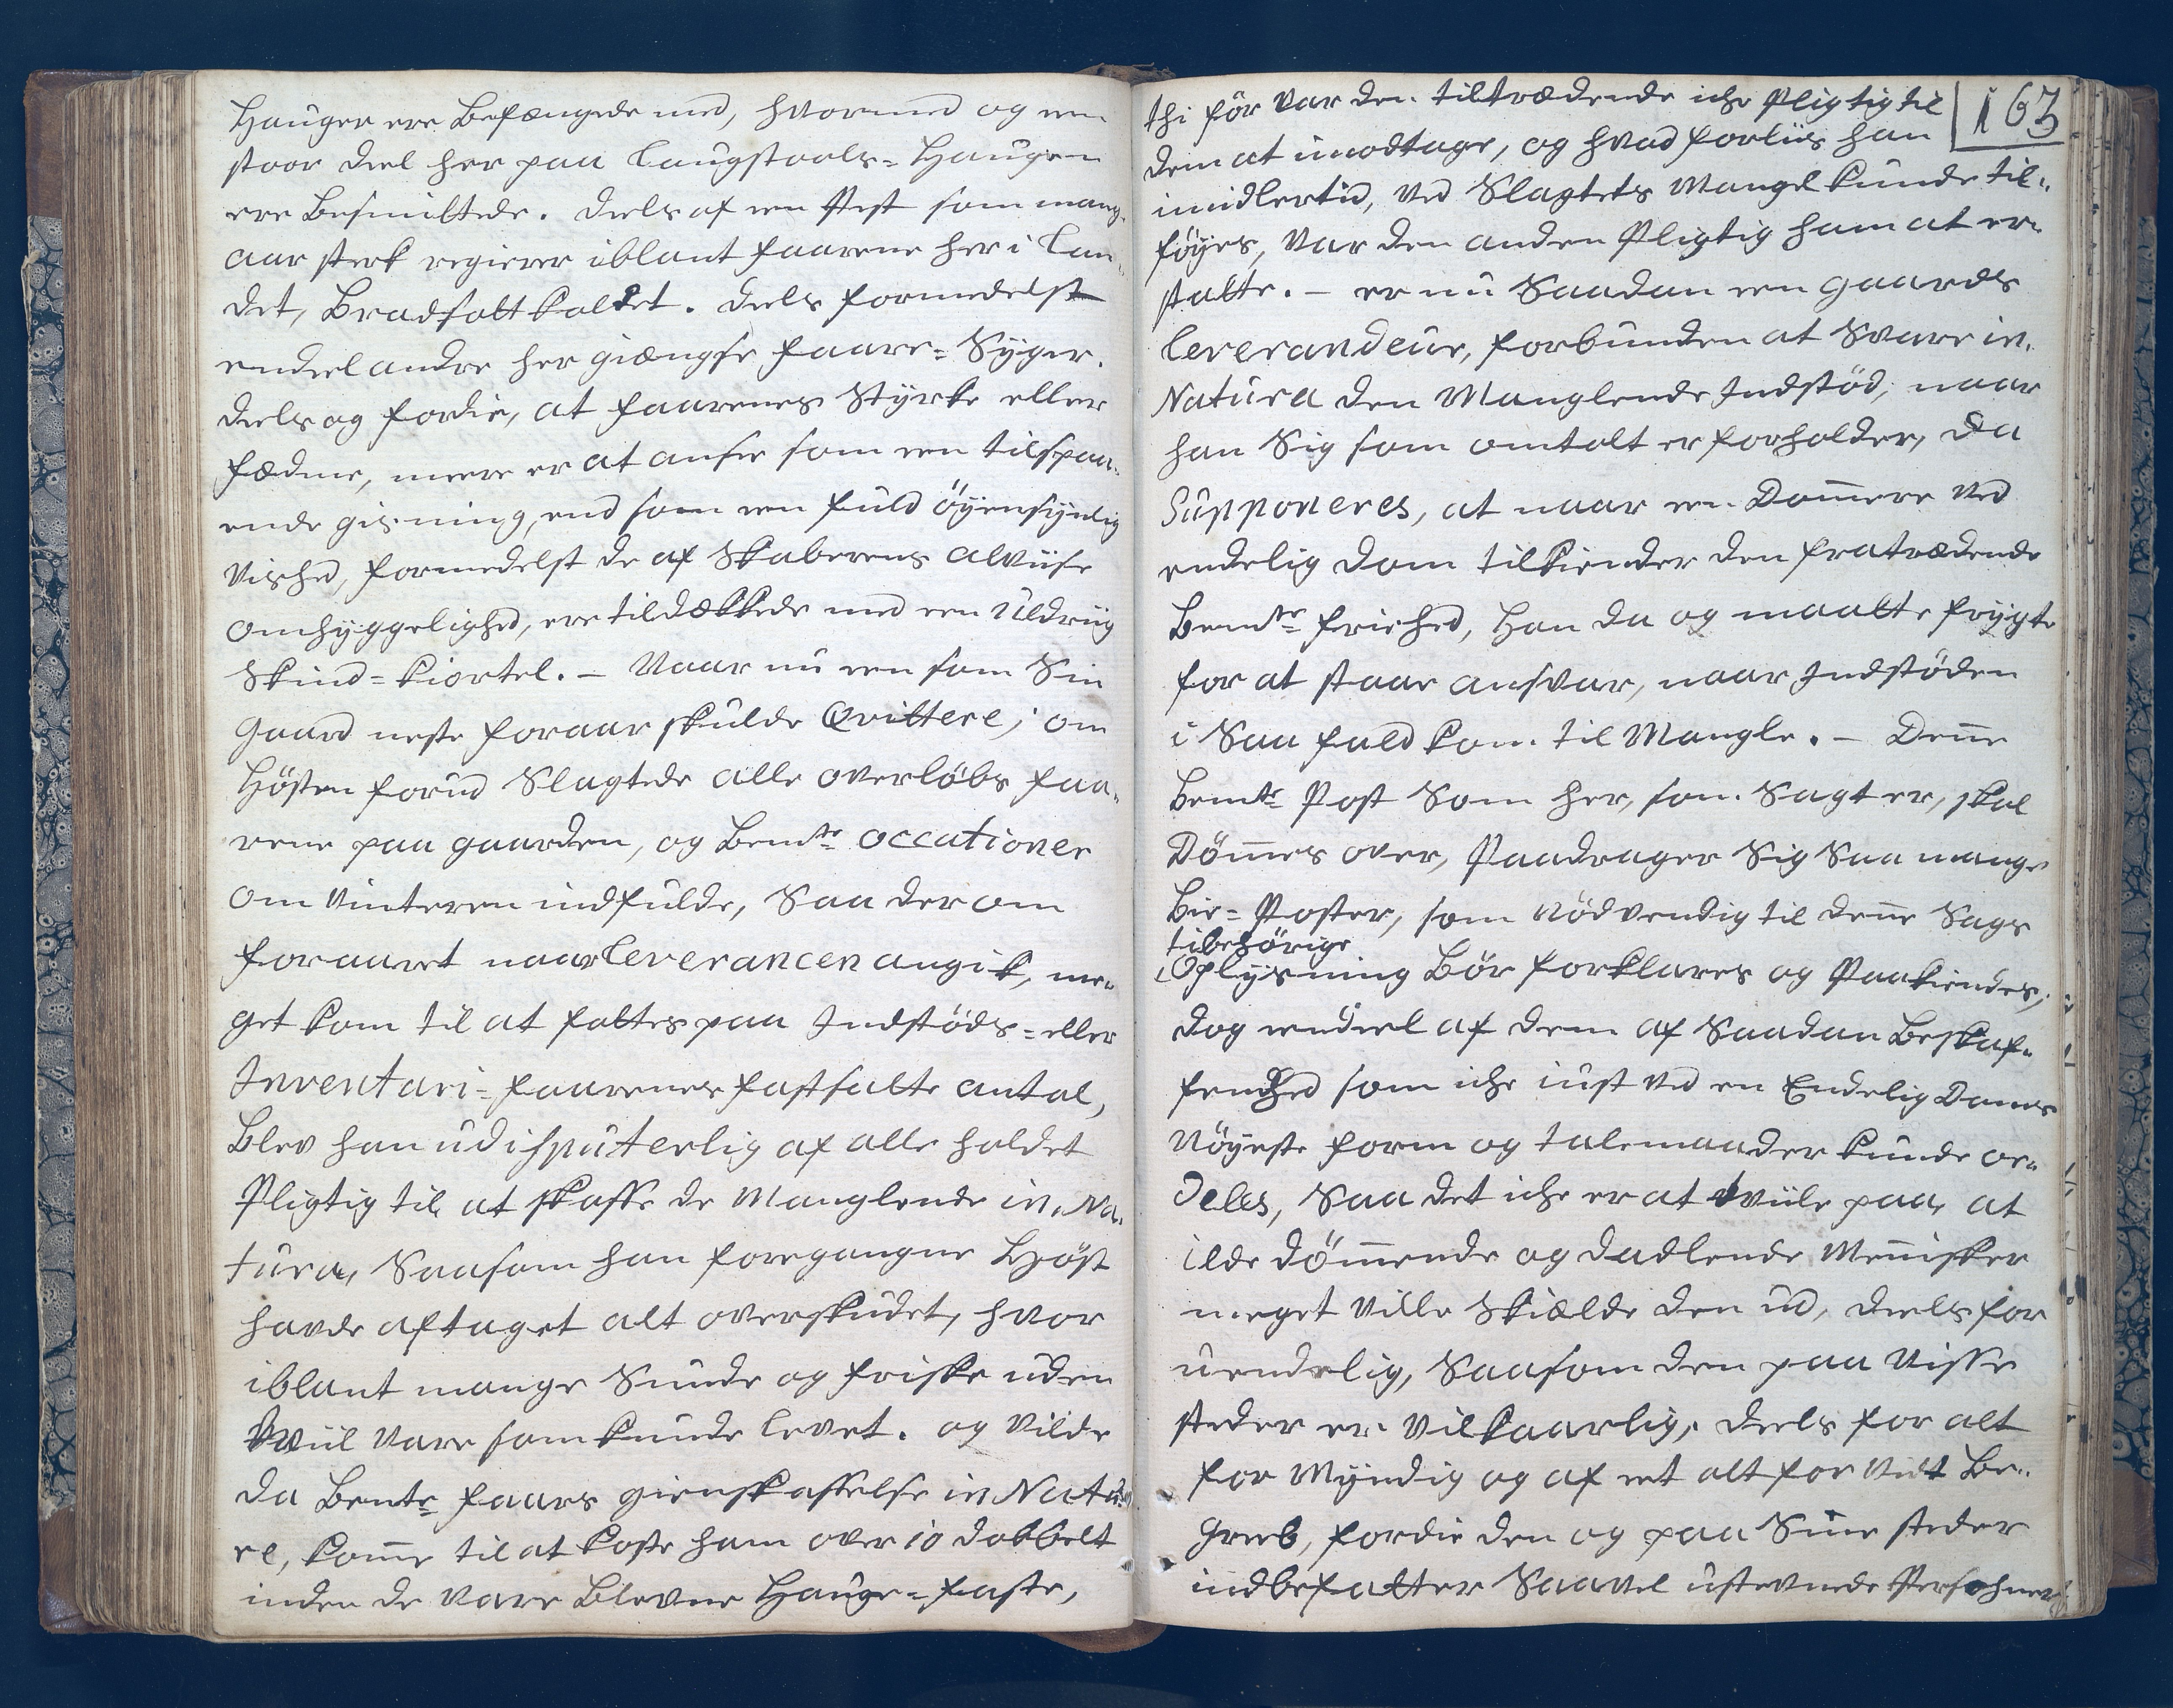 Hauger ere Befængede med, hvormed og een
stoor deel her paa Laugstaals-Haugen
ere Besmittede. deels af een Pest som mang
aar sterk regierer iblant faarene her i Lan„
det, Bradsott kaldet. deels formedelst
endeel andre her giængse faare-Syger.
deels og fordie, at faarenes Styrke eller
fædme, meere er at ansee som een tilspaa„
ende gisning, end som een fuld öyensynlig
vished, formedelst de af Skaberens alviise
omhyggelighed, ere tildækkede med een Uldrüg
Skind-kiortel. – Naar nu een som Sin
gaard neste foraar skulde Qvittere, om
Hösten forud Slagtede alle overlöbs faa„
rene paa gaarden, og Bemte occationer
om vinteren indfulde, Saa der om
foraaret naar Leverancen angik, me„
get kom til at fattes paa Indstöds- eller
Inventari-faarenes fastsatte antal,
Blev han udisputerlig af alle holdet
Pligtig til at skaffe de Manglende in Na„
tura, Saasom han foregangne Höst
havde aftaget alt overskudet, hvor
iblant mange Sunde og friske uden
Tviil vare som kunde levet. og vilde
da Bemte faars gienskaffelse in Natu„
re, komme til at koste ham over 10 dobbelt
inden de vare Blevne Hauge-faste,
163
thi för var den tiltrædende iche Pligtig til
dem at imodtage, og hvad forliis han
imidlertid, ved Slagtets Mangel kunde til„
föyes, var den anden Pligtig ham at er„
statte. – er nu Saadan een gaards
Leverandeur, forbunden at Svare in
Natura den Manglende Indstöd, naar
han Sig som omtalt er forholder, da
Supponeres, at naar een Dommere ved
endelig dom tilkiender den fratrædende
Bemte friehed, Han da og maatte frygte
for at staae ansvar, naar Indstöden
i Saa fald kom til Mangle. – Denne
Bemte Post Som her, som Sagt er, skal
Dömmes over, Paadrager Sig Saa mange
Bie-Poster, som Nödvendig til denne Sags
tilbehörige
Oplysning Bör forklares og Paakiendes,
dog eendeel af dem af Saadan Beskaf„
fenhed som iche iust ved en Endelig Doms
Nöyeste form og talemaader kunde or„
deles, Saa det iche er at tviile paa, at
ilde dömmende og dadlende Mennisker
meget ville Skiælde den ud, deels for
uendelig, Saasom den paa Visse
steder er Vilkaarlig, deels for alt
for Myndig og af eet alt for vidt Be„
greb, fordie den og paa Sine steder
indbefatter Saavel ustevnede Persohner